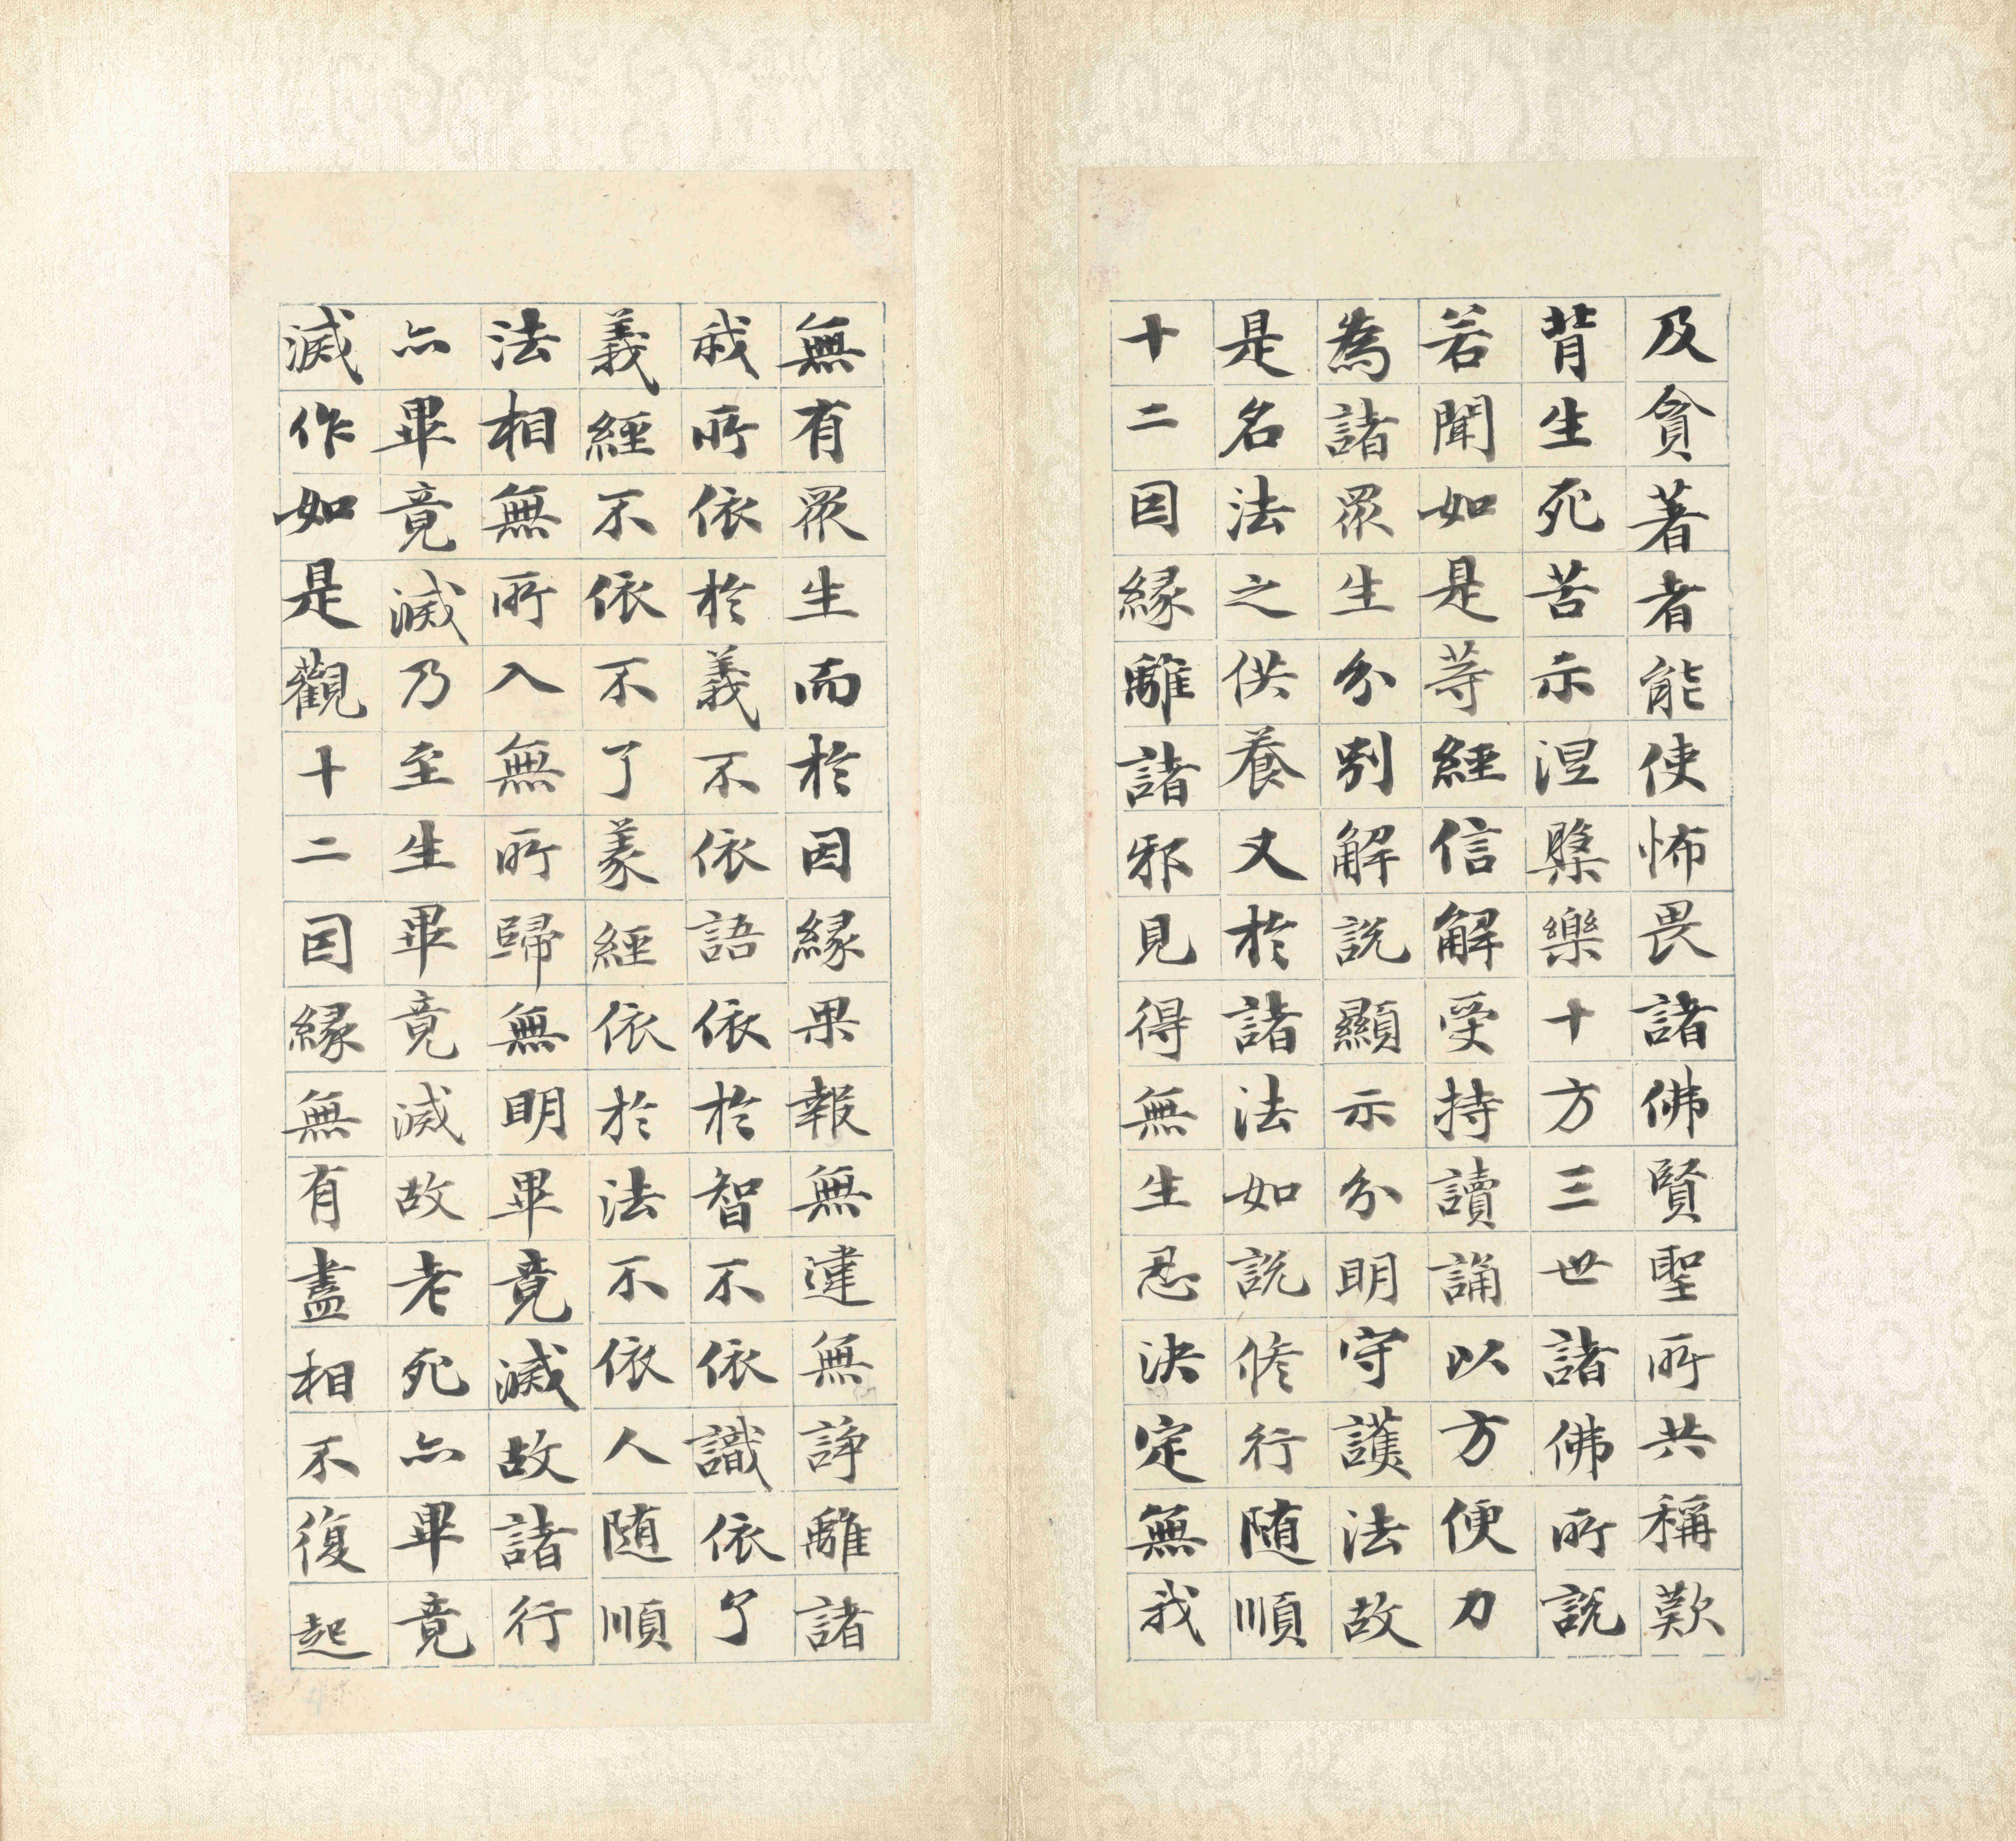 及貪著者能使怖畏諸佛賢聖所共稱歎
背生死苦示涅槃樂十方三世諸佛所說
若聞如是等經信解受持讀誦以方便力
為諸眾生分別解說顯示分明守護法故
是名法之供養又於諸法如說修行随順
十二因緣離諸邪見得無生忍決定無我
無有眾生而於因緣果報無違無諍離諸
我所依於義不依語依於智不依識依了
義經不依不了義經依於法不依人随順
法相無所入無所歸無明畢竟滅故諸行
亦畢竟滅乃至生畢竟滅故老死亦畢竟
滅作如是觀十二因緣無有盡相不復起